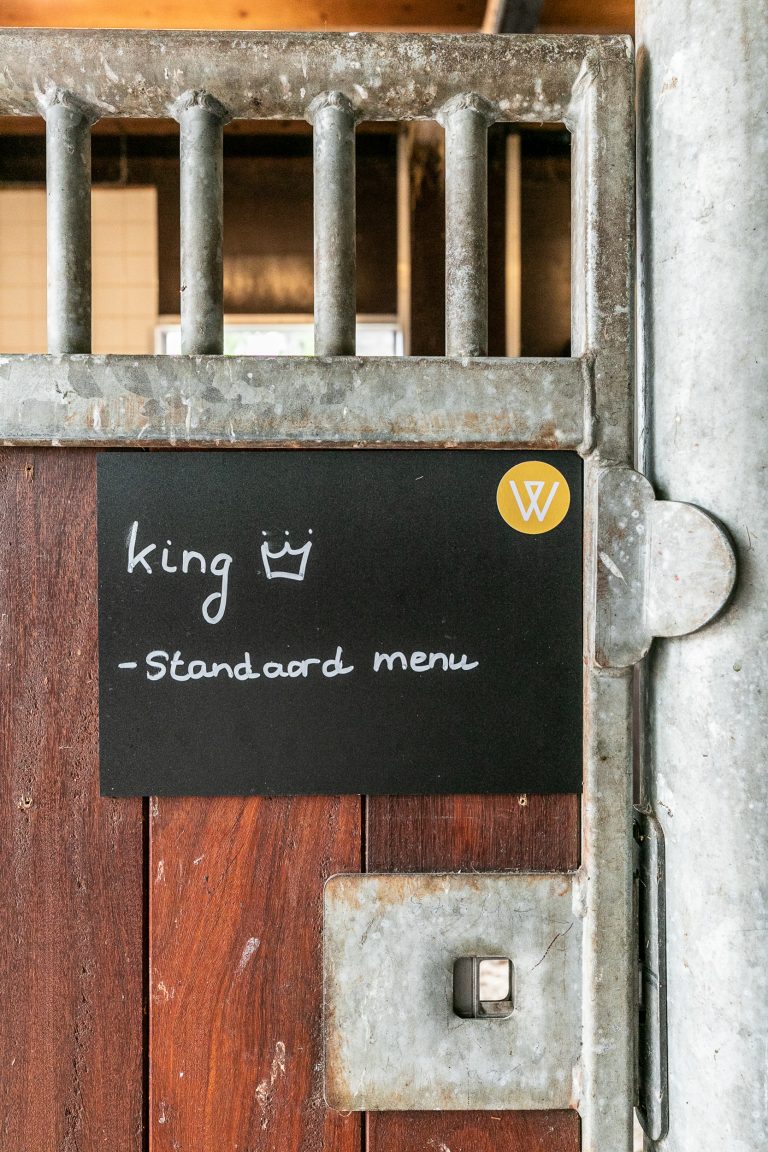 W
king
-Standaard menu